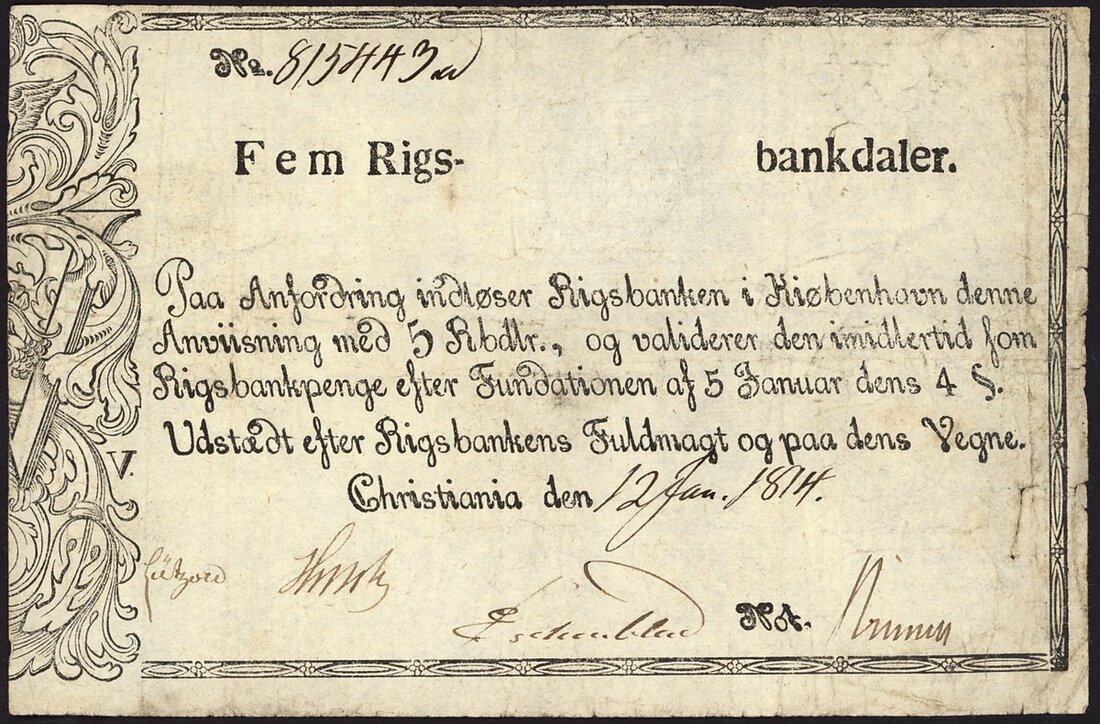 No. 815443
Fem Rigs- bankdaler.
Paa Anfordring indløser Rigsbanken i Kiøbenhavn denne
Anviisning med 5 Rbdlr., og validerer den imidlertid som
Rigsbankpenge efter Fundationen af 5 Januar dens 4 §.
Udstædt efter Rigsbankens Fuldmagt og paa dens Vegne.
V.
Christiania den 12 Jan. 1814.
Not.